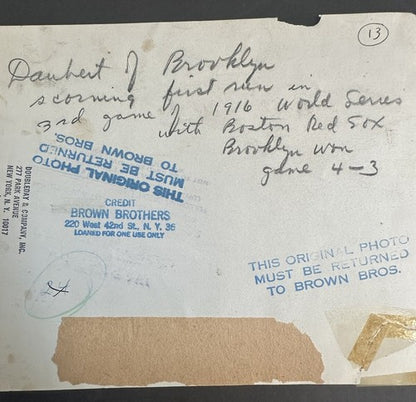 13
Daubert of Brooklyn
scorning first run in
3rd game of 1916 World Series
with Boston Red Sox.
Brooklyn Won
game 4-3
THIS ORIGINAL PHOTO
MUST BE RETURNED
TO BROWN BROS.
DOUBLEDAY & COMPANY, INC.
277 PARK AVENUE
NEW YORK, N. Y. 10017
CREDIT
BROWN BROTHERS
220 West 42nd St., N. Y. 36
LOANED FOR ONE USE ONLY
THIS ORIGINAL PHOTO
MUST BE RETURNED
TO BROWN BROS.